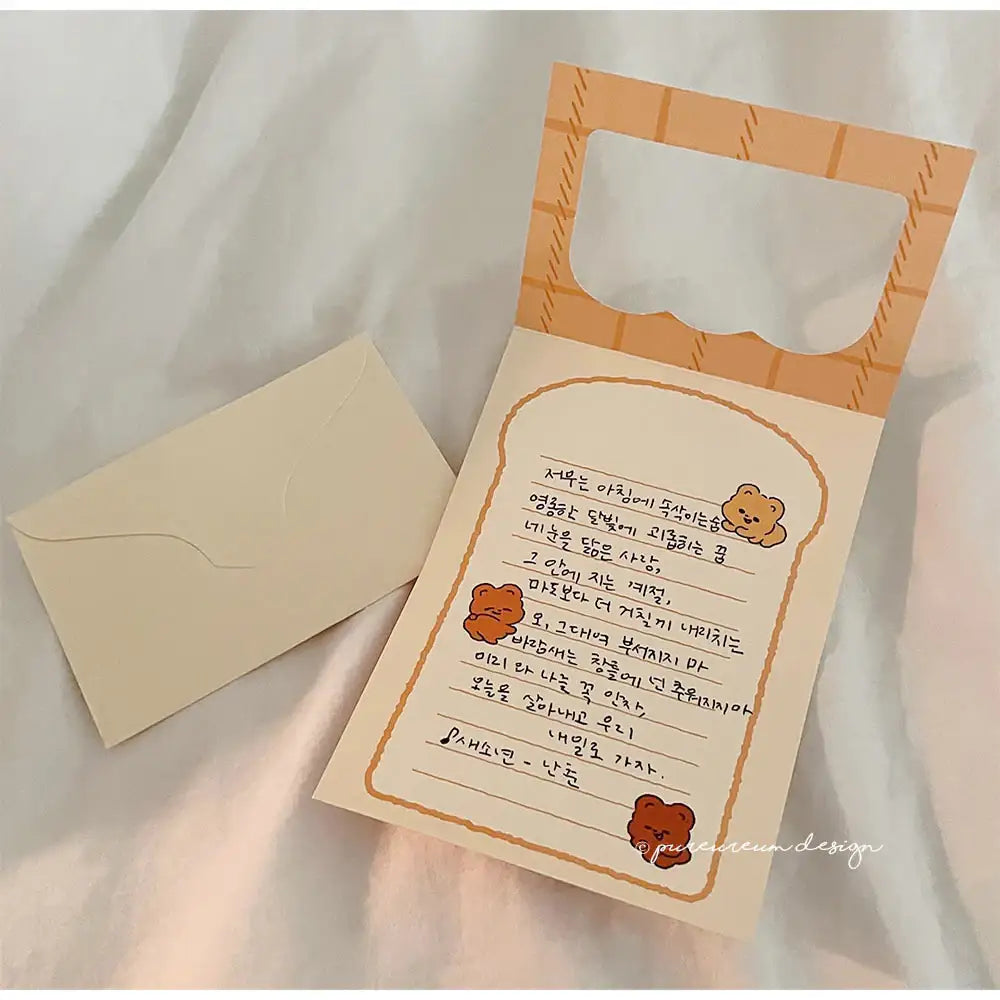 저무는 아침에 속삭이는 숨
영롱한 달빛에 괴롭히는 꿈
네 눈을 닮은 사랑,
그 안에 지는 계절,
파도보다 더 거칠게 내리치는
오, 그대여 부서지지 마
바람새는 창틀에 넌 추워지지마
이리 와 나를 꼭 안자,
오늘을 살아내고 우리
내일로 가자.
♪새소년 - 난춘
© pureureum design